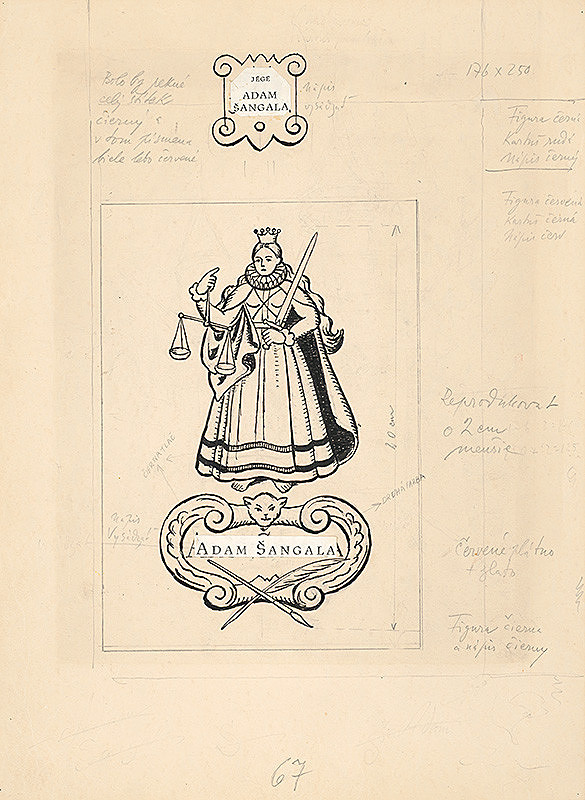 JÉGÉ
ADAM
ŠANGALA
nápis
176 x 250
Bolo by pekné
celý štítok
čierny a
v tom písmená
biele lebo červené
Figura čierna
Kartuš rudá
Nápis čierny
Figura červená
Kartuš čierna
Nápis čierny
20 cm
Reprodukovať
o 2 cm
menšie
nápis
ADAM ŠANGALA
Červené plátno
+ zlato
Figura čierna
a nápis čierny
67